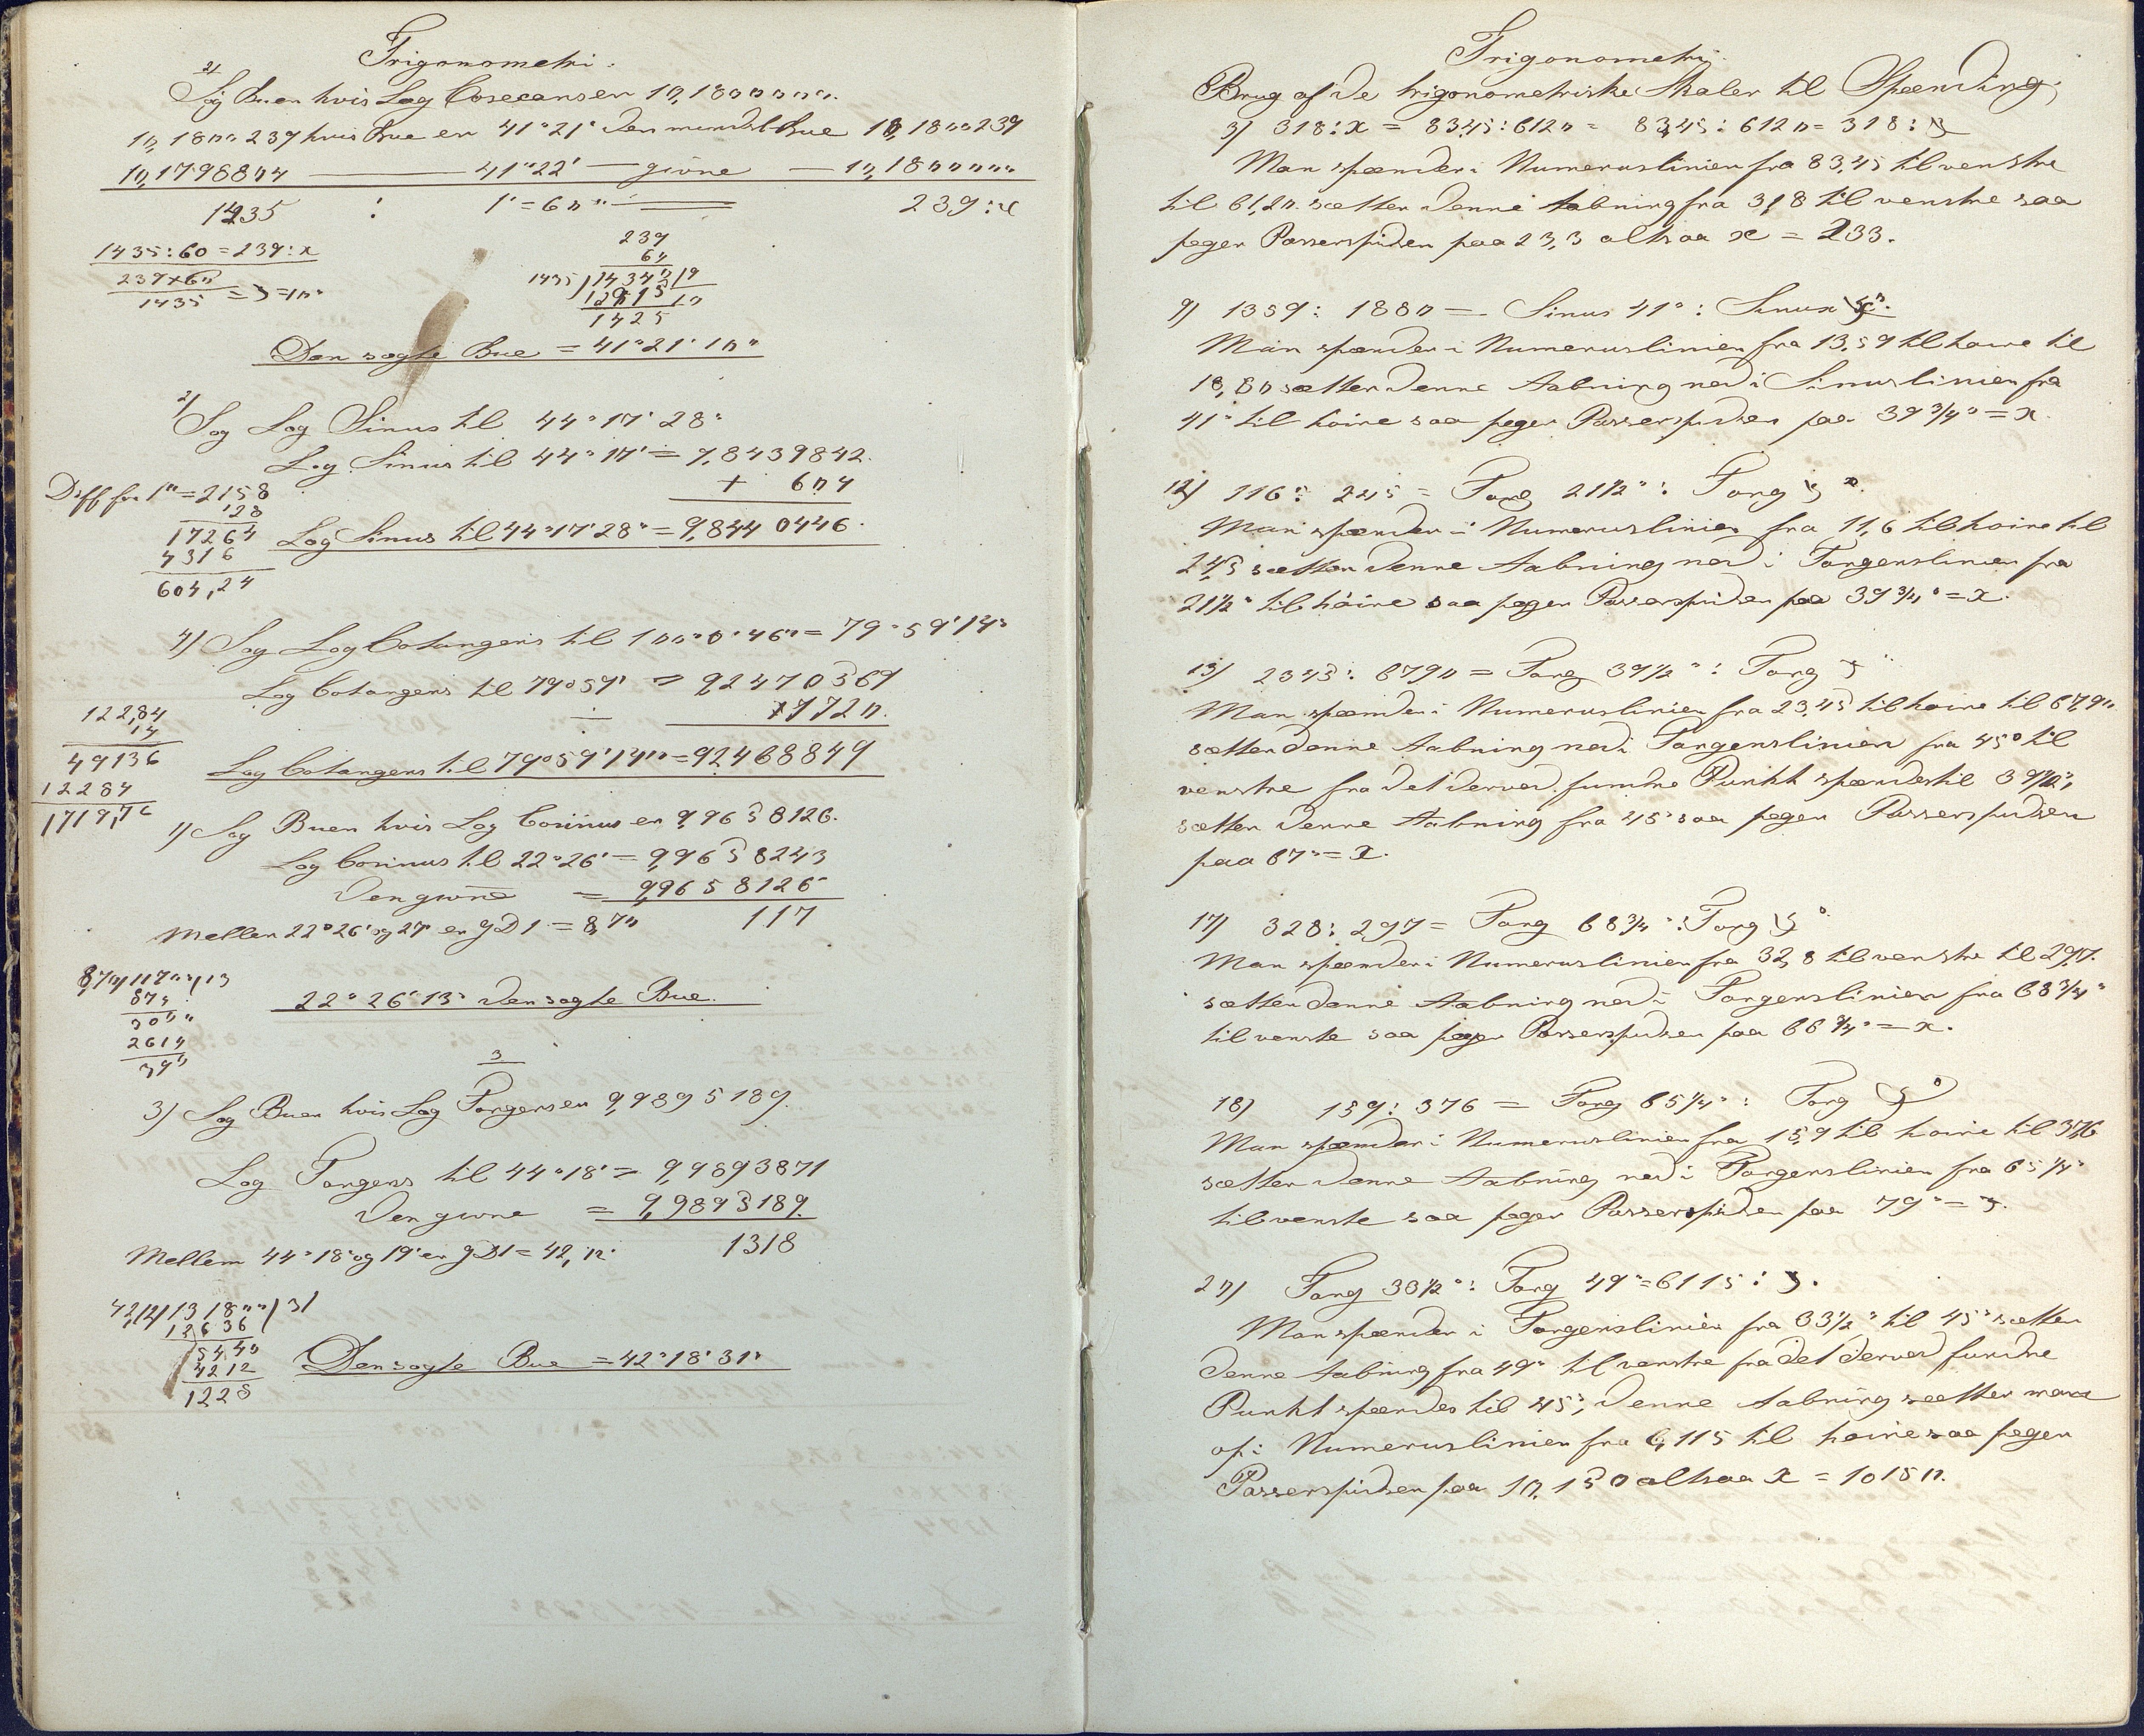 Trigonometri.
2)
Søg Buen hvis Log Cosecansen 10,1800000.
10,1800239 hvis Bue er 41°21' den mindst Bue 10,1800239
10,1798804 — 41°22' — givne — 10,1800000
1435 : 1' = 60" — 239 : x
1435 : 60 = 239 : x
239 × 60
1435 = x = 10"
239
60
1435 / 14340 / 9
12915 10
1425
Den søgte Bue = 41°21'10"
2)
Søg Log Sinus til 44°17'28"
Log Sinus til 44°17' = 9,8439842.
+ 604
Diff for 1" = 2158
128
17264
4316
604,24
Log Sinus til 44°17'28" = 9,8440446.
4) Søg Log Cotangens til 100°0'46" = 79°59'14"
Log Cotangens til 79°59' = 9,2470569
÷ 1720.
122,84
14
49136
12284
1719,76
Log Cotangens til 79°59'14" = 9,2468849
1) Søg Buen hvis Log Cosinus er 9,9658126.
Log Cosinus til 22°26' = 9,9658243
Den givne = 9,9658126
Mellem 22°26' og 27' er gD1 = 8,70 117
8,70/11700/13
870
3000
2610
390
22°26'13" den søgte Bue.
3
3) Søg Buen hvis Log Tangens er 9,9895189.
Log Tangens til 44°18' = 9,9893871
Den givne = 9,9895189.
Mellem 44°18' og 19' er gD1 = 42,12. 1318
42,12/131800/31
12636
5440
4212
1228
Den søgte Bue = 42°18'31"
Trigonometri.
Brug af de trigonometriske Skaler til Spænding,
3) 318 : x = 8345 : 6120 = 8345 : 6120 = 318 : x
Man spænder i Numeruslinien fra 83,45 til venstre
til 61,20. sætter denne Aabning fra 31,8 til venstre saa
peger Passerspidsen paa 23,3 altsaa x = 233.
9) 1359 : 1880 = Sinus 41° : Sinus x°.
Man spænder i Numeruslinien fra 13,59 til høire til
18,80 sætter denne Aabning ned i Sinuslinien fra
41° til høire saa peger Passerspidsen paa 39 3/4° = x.
12) 116 : 245 = Tang 21 1/2° : Tang x°.
Man spænder i Numeruslinien fra 11,6 til høire til
24,5 sætter denne Aabning ned i Tangenslinien fra
21 1/2° til høire saa peger Passerspidsen paa 39 3/4° = x.
13) 2345 : 6790 = Tang 39 1/2° : Tang x°
Man spænder i Numeruslinien fra 23,45 til høire til 67,90.
sætter denne Aabning ned i Tangenslinien fra 45° til
venstre fra det derved fundne Punkt spændes til 39 1/2°,
sætter denne Aabning fra 45° saa peger Passerspidsen
paa 67° = x.
17) 328 : 297 = Tang 68 3/4° : Tang x°
Man spænder i Numeruslinien fra 32,8 til venstre til 29,7.
sætter denne Aabning ned i Tangenslinien fra 68 3/4°
til venste saa peger Passerspidsen paa 66 3/4° = x.
18) 159 : 376 = Tang 65 1/4° : Tang x°
Man spænder i Numeruslinien fra 15,9 til høire til 37,6
sætter denne Aabning ned i Tangenslinien fra 65 1/4°
til venste saa peger Passerspidsen paa 79° = x.
20) Tang 33 1/2° : Tang 49° = 6115 : x.
Man spænder i Tangenslinien fra 33 1/2° til 45° sætter
denne Aabning fra 49° til venstre fra det derved fundne
Punkt spændes til 45°, denne Aabning sætter man
op i Numeruslinien fra 6,115 til høire saa peger
Passerspidsen paa 10,150 altsaa x = 10150.